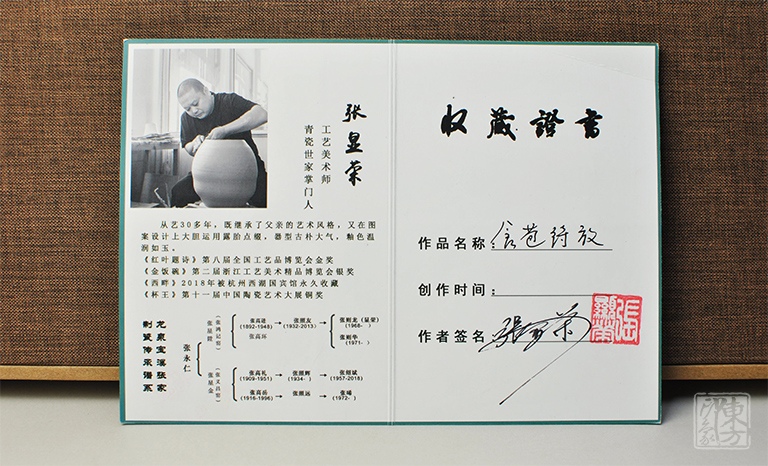 张显荣
工艺美术师
青瓷世家掌门人
从艺30多年,既继承了父亲的艺术风格,又在图
案设计上大胆运用露胎点缀,器型古朴大气,釉色温
润如玉。
《红叶题诗》第八届全国工艺品博览会金奖
《金饭碗》第二届浙江工艺美术精品博览会银奖
《西畔》2018年被杭州西湖国宾馆永久收藏
《杯王》第十一届中国陶瓷艺术大展铜奖
龙泉宝溪张家
制瓷传承谱系
张永仁
张高进
(1892-1948)
张高环
张照友
(1932-2013)
张明龙(显荣)
(1968- )
张明华
(1971- )
张高礼
(1909-1951)
张照辉
(1934- )
张绍斌
(1957-2018)
张高岳
(1916-1996)
张照远
(1972- )
收藏證書
作品名称:含苞待放
创作时间:
作者签名
張显榮
東方